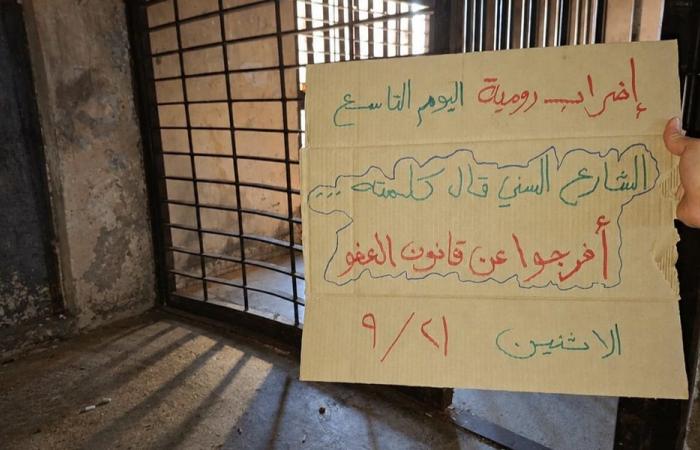 إضراب رومية اليوم التاسع
الشارع السني قال كلمته ...
أفرجوا عن قانون العفو
الاثنين ٩/٢١